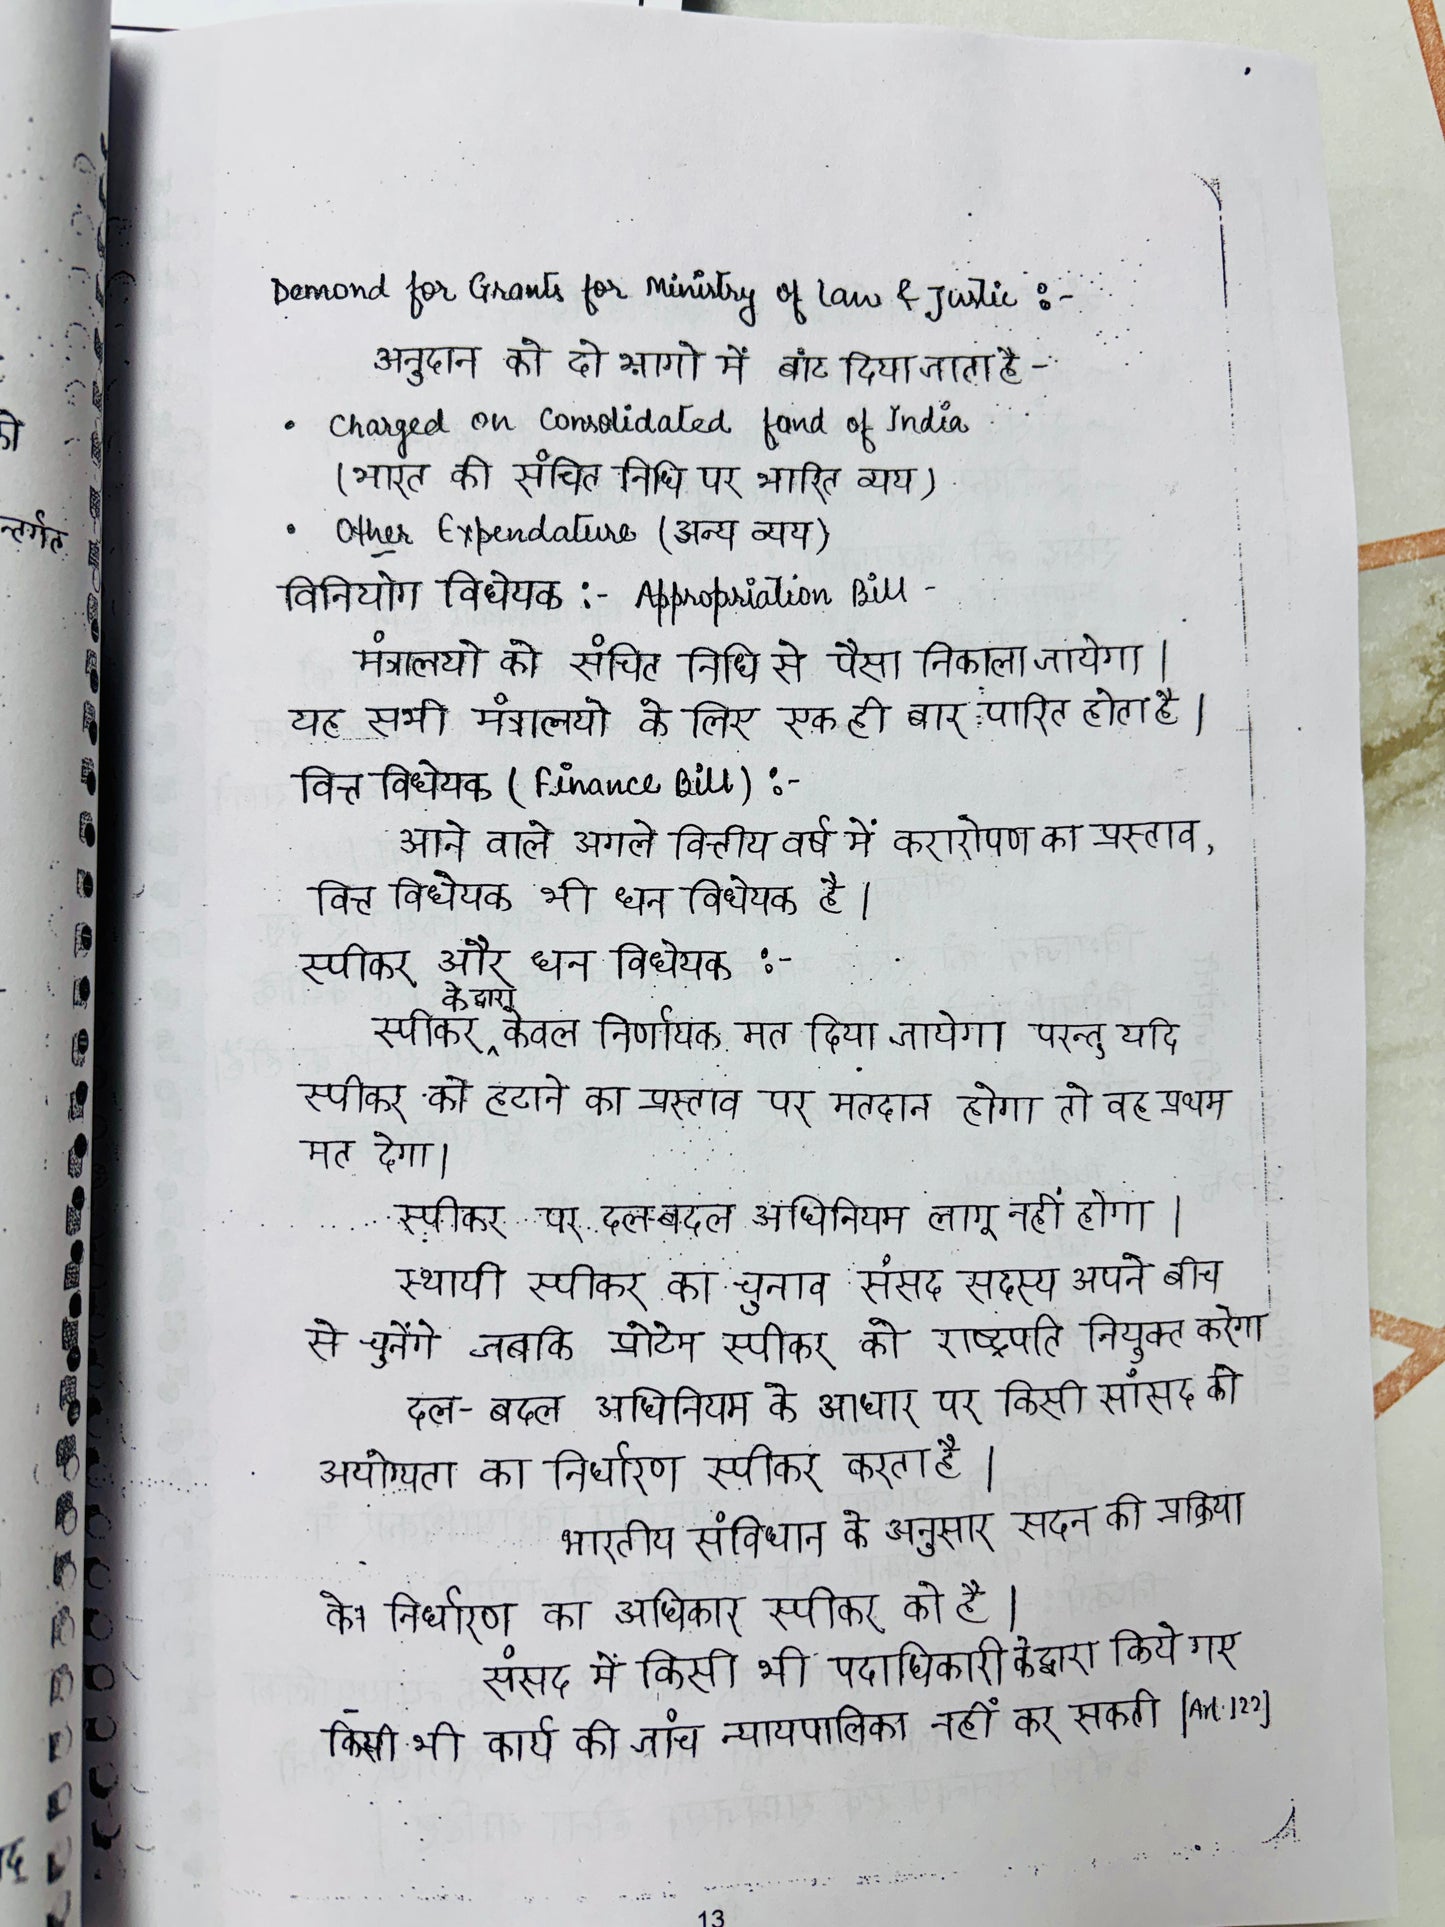 Demond for Grants for Ministry of Law & Justic :-
अनुदान को दो भागो में बांट दिया जाता है -
• Charged on Consolidated fand of India
(भारत की संचित निधि पर भारित व्यय)
• Other Expendature (अन्य व्यय)
विनियोग विधेयक :- Appropriation Bill -
मंत्रालयो को संचित निधि से पैसा निकाला जायेगा |
यह सभी मंत्रालयो के लिए एक ही बार पारित होता है |
वित्त विधेयक ( Finance Bill ) :-
आने वाले अगले वित्तीय वर्ष में करारोपण का प्रस्ताव,
वित्त विधेयक भी धन विधेयक है |
स्पीकर और धन विधेयक :-
के द्वारा
स्पीकर ‸ केवल निर्णायक मत दिया जायेगा परन्तु यदि
स्पीकर को हटाने का प्रस्ताव पर मतदान होगा तो वह प्रथम
मत देगा |
स्पीकर पर दल-बदल अधिनियम लागू नहीं होगा |
स्थायी स्पीकर का चुनाव संसद सदस्य अपने बीच
से चुनेंगे जबकि प्रोटेम स्पीकर को राष्ट्रपति नियुक्त करेगा
दल-बदल अधिनियम के आधार पर किसी सांसद की
अयोग्यता का निर्धारण स्पीकर करता है |
भारतीय संविधान के अनुसार सदन की प्रक्रिया
के निर्धारण का अधिकार स्पीकर को है |
संसद में किसी भी पदाधिकारी के द्वारा किये गए
किसी भी कार्य की जांच न्यायपालिका नहीं कर सकती [Art.122]
13
को
न्तर्गत